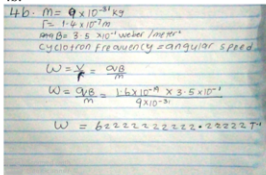 4b. m = 9 x 10⁻³¹ kg
r = 1.4 x 10⁻⁷ m
B = 3.5 x10⁻¹ weber / meter²
cyclotron Frequency = angular speed
W = V/r = qvB/m
W = qB/m = 1.6x10⁻¹⁹ x 3.5x10⁻¹ / 9x10⁻³¹
W = 62222222222.22222 T⁻¹